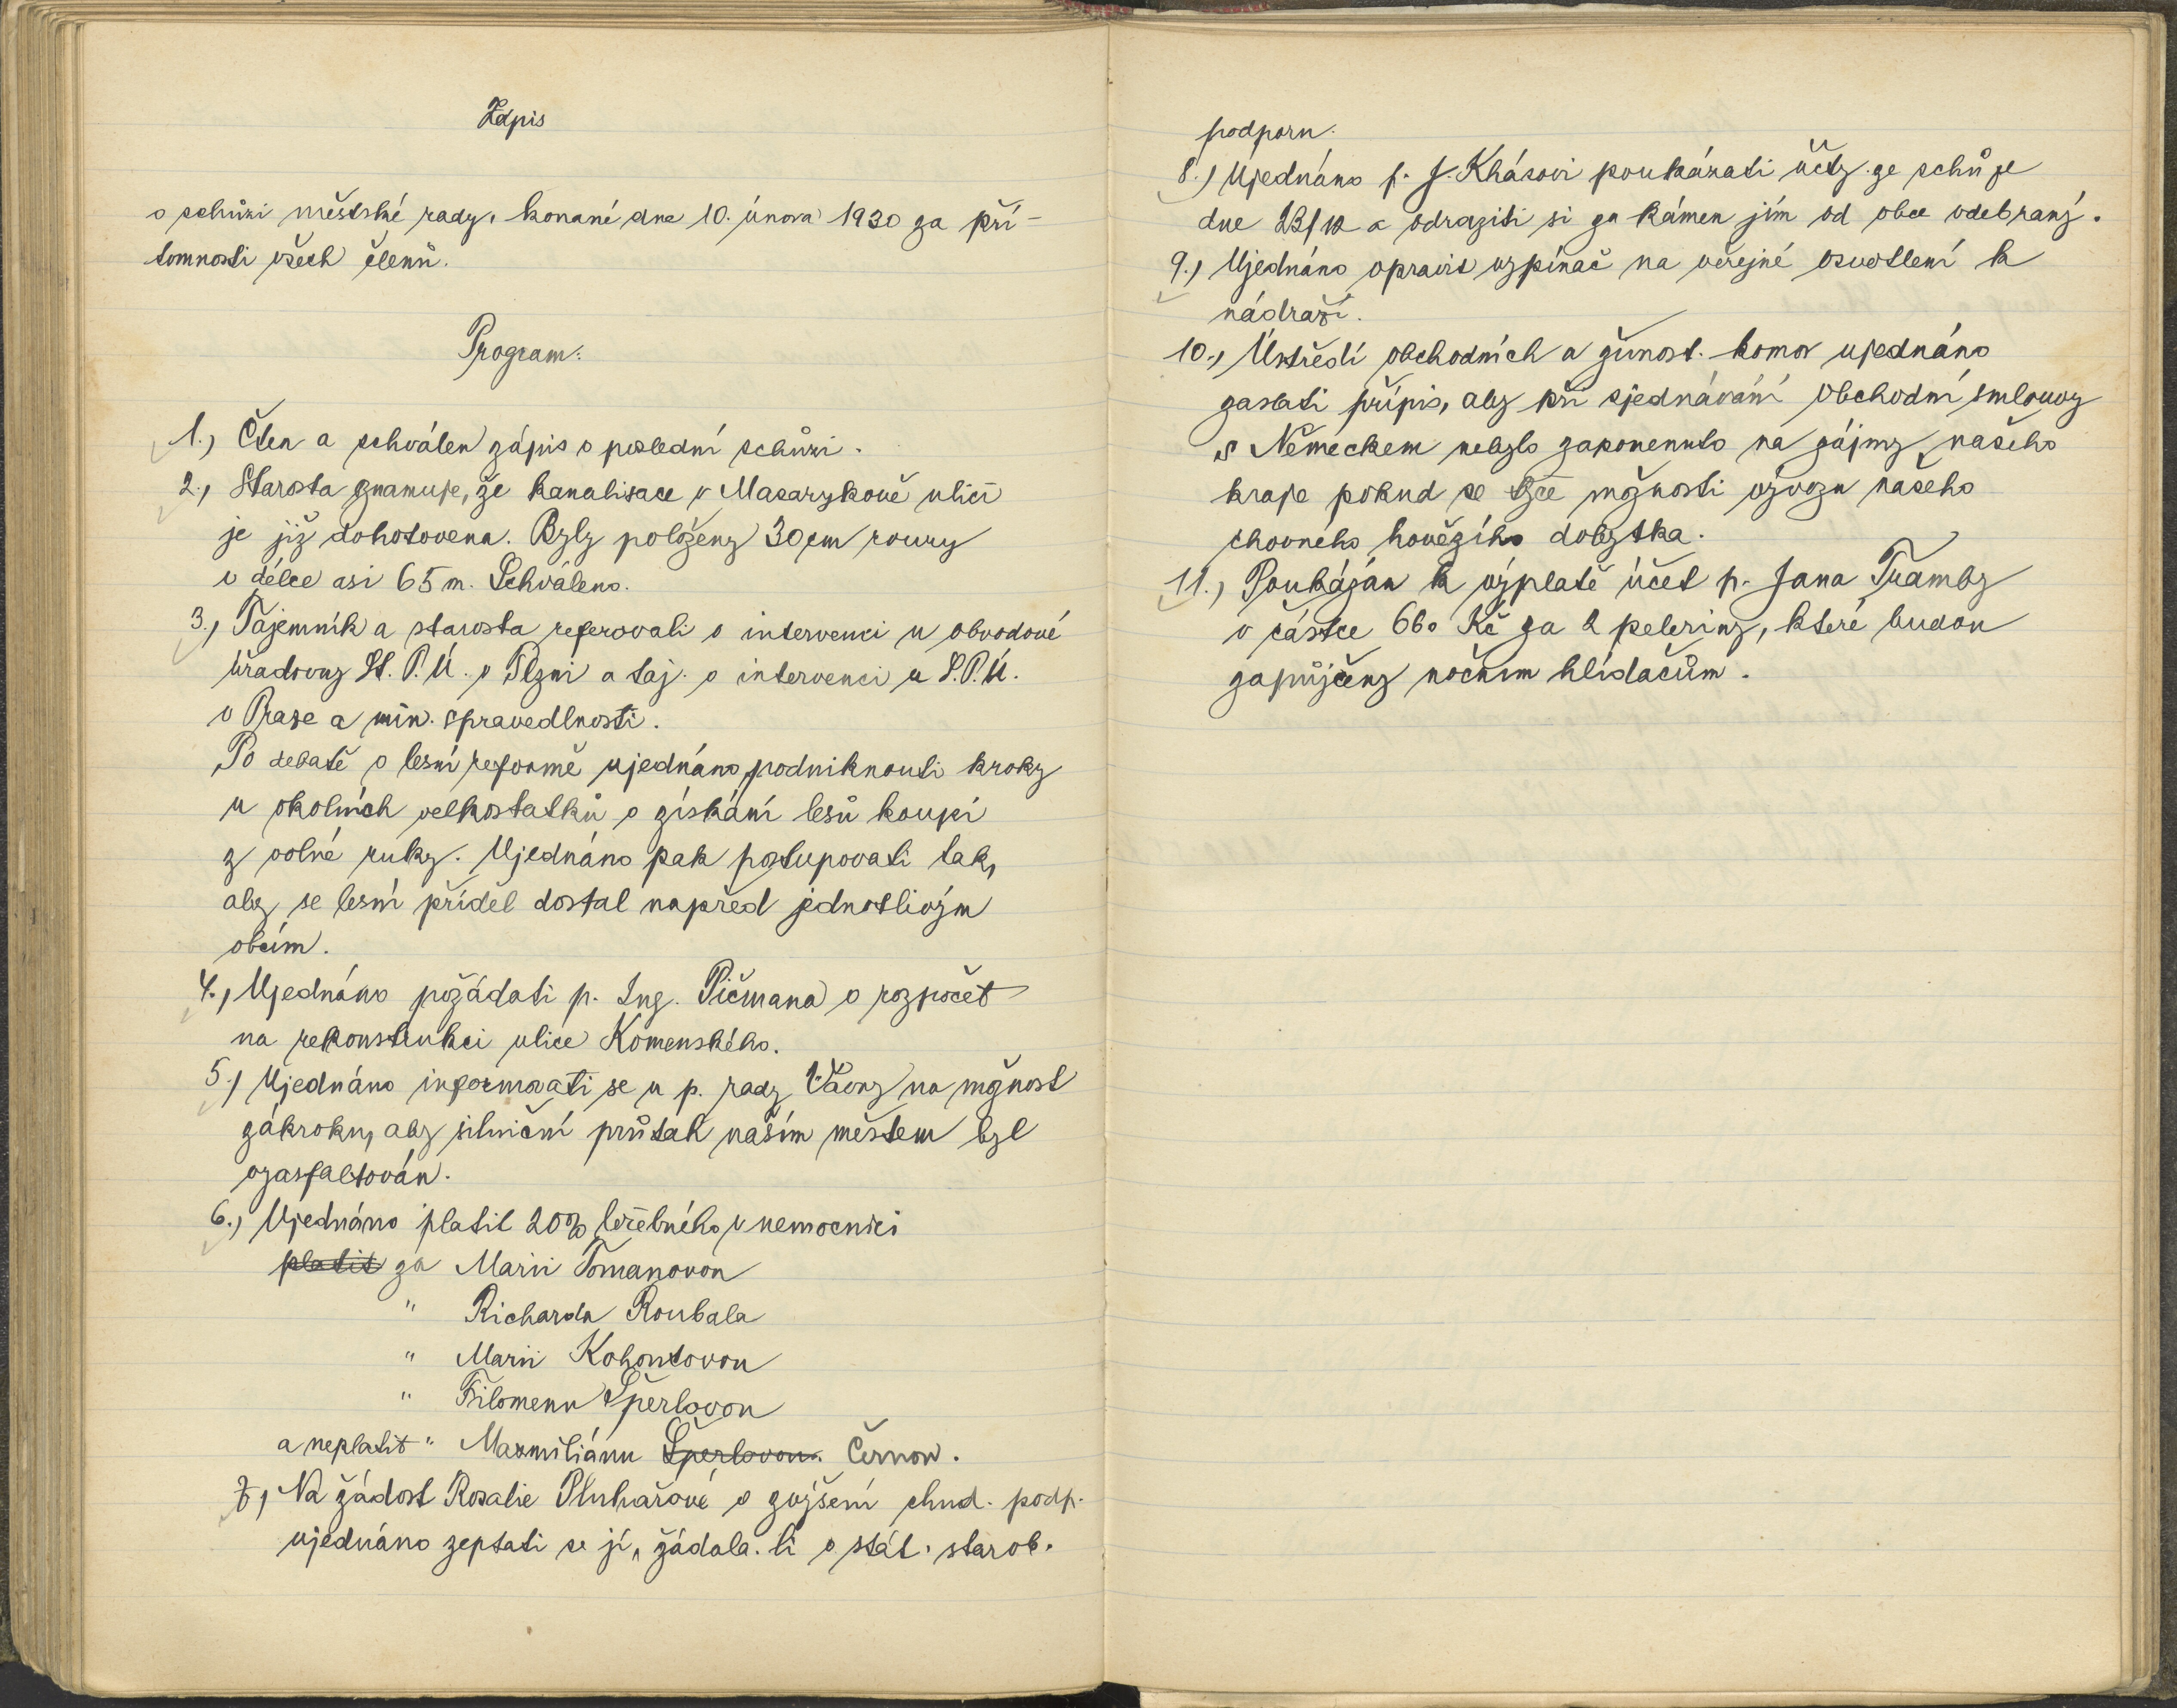 Zápis
o schůzi městské rady, konané dne 10. února 1930 za pří-
tomnosti všech členů.
Program:
1.) Čten a schválen zápis o poslední schůzi.
2.) Starosta znamuje, že kanalisace v Masarykově ulici
je již dohotovena. Byly položeny 30 cm roury
v délce asi 65 m. Schváleno.
3.) Tajemník a starosta referovali o intervenci u obvodové
úřadovny St. P. Ú. v Plzni a taj. o intervenci u S.P.Ú.
v Praze a min. spravedlnosti.
Po debatě o lesní reformě ujednáno, podniknouti kroky
u okolních velkostatků o získání lesů koupí
z volné ruky. Ujednáno pak postupovati tak,
aby se lesní příděl dostal napřed jednotlivým
obcím.
4.) Ujednáno požádati p. Ing. Pičmana o rozpočet
na rekonstrukci ulice Komenského.
5.) Ujednáno informovati se u p. rady Vávry na možnost
zákroku, aby silniční průtah naším městem byl
vyasfaltován.
6.) Ujednáno platit 20% léčebného v nemocnici
platit za Marii Tomanovou
" Richarda Roubala
" Marii Kohoutovou
" Filomenu Šperlovou
a neplatit " Maxmiliánu Šperlovou. Černou.
7.) Na žádost Rosalie Pluhařové o zvýšení chud. podp.
ujednáno zeptati se jí, žádala-li o stát. starob.
podporu.
8.) Ujednáno p. J. Khásovi poukázati účty ze schůze
dne 23/12 a odraziti si za kámen jím od obce odebraný.
9.) Ujednáno opravit vypínač na veřejné osvětlení k
nádraží.
10.) Ústředí obchodních a živnost. komor ujednáno
zaslati přípis, aby při sjednávání obchodní smlouvy
s Německem nebylo zapomenuto na zájmy našeho
kraje pokud se týče možnosti vývozu našeho
chovného hovězího dobytka.
11.) Poukázán k výplatě účet p. Jana Tramby
v částce 660 Kč za 2 peleriny, které budou
zapůjčeny nočním hlídačům.